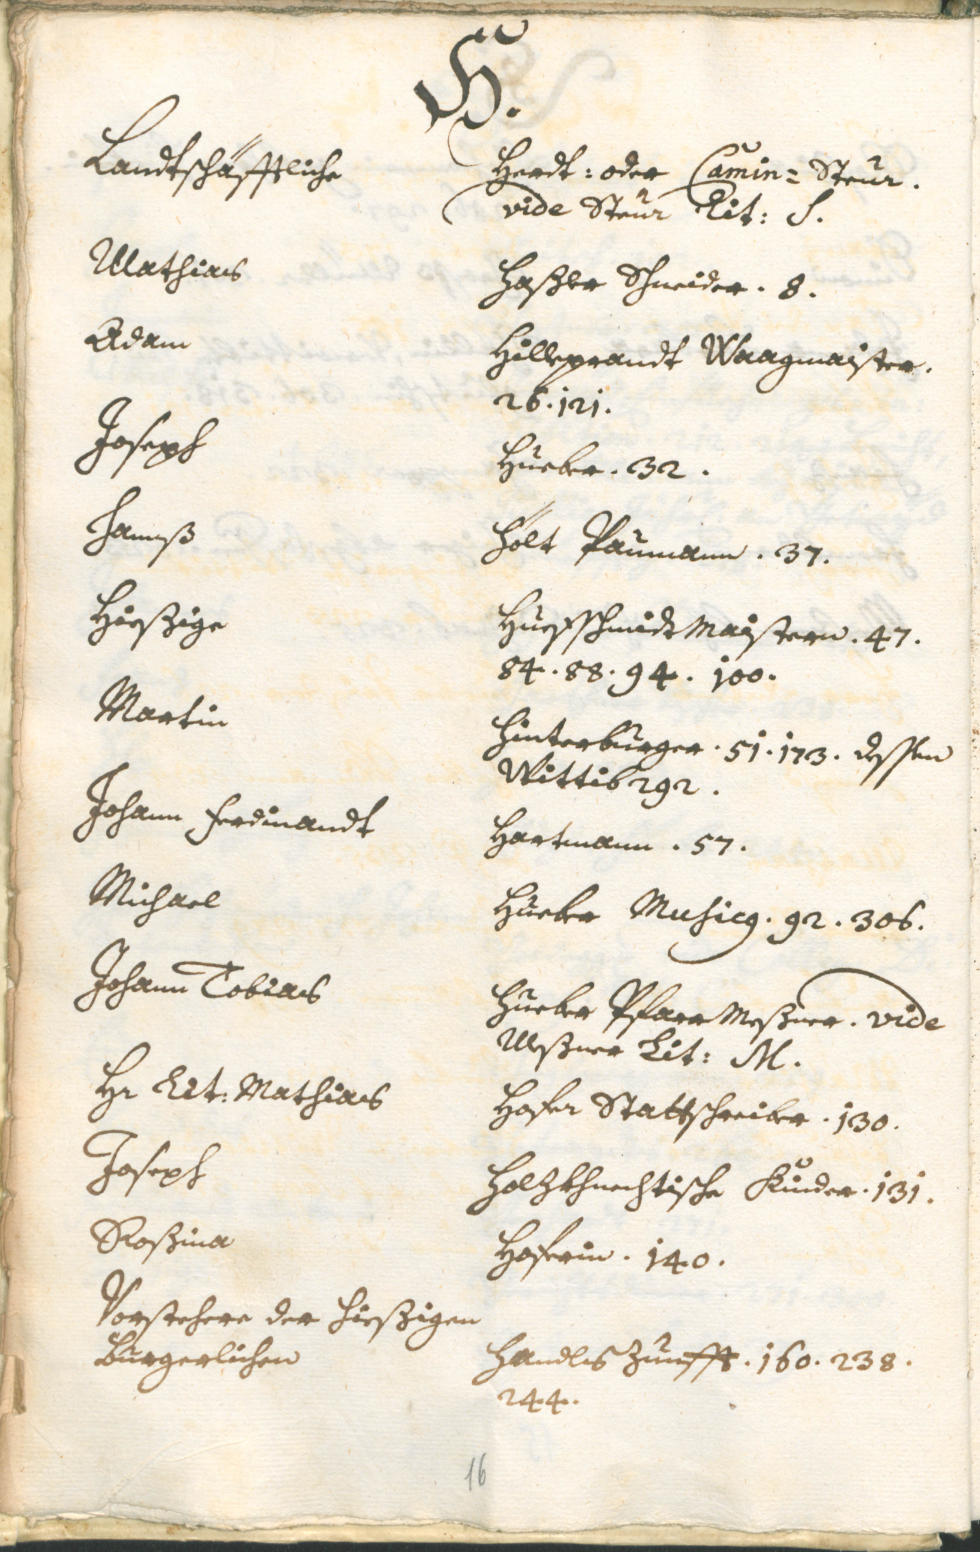 H.
Landtschäfftliche Herdt: oder Camin= Steur.
vide Steur Lit: S.
Mathias Haßler Schneider. 8.
Adam Hilleprandt Waagmaister.
26. 121.
Joseph Hueber. 32.
Hannß Höll Paumann. 37.
Hießige Huefschmidt Maistern. 47.
84. 88. 94. 100.
Martin Hinterburger. 51. 173. dessen
Wittib 292.
Johann Ferdinandt Hartmann. 57.
Michael Hueber Musicg. 92. 306.
Johann Tobias Hueber Pfarr Meßner. vide
Meßner Lit: M.
Hr Lit: Mathias Hofer Stattschreiber. 130.
Joseph Holzkhnechtische Kinder. 131.
Roßina Hoferin. 140.
Vorstehere der hießigen
Burgerlichen Handls Zunfft. 160. 238.
244.
16